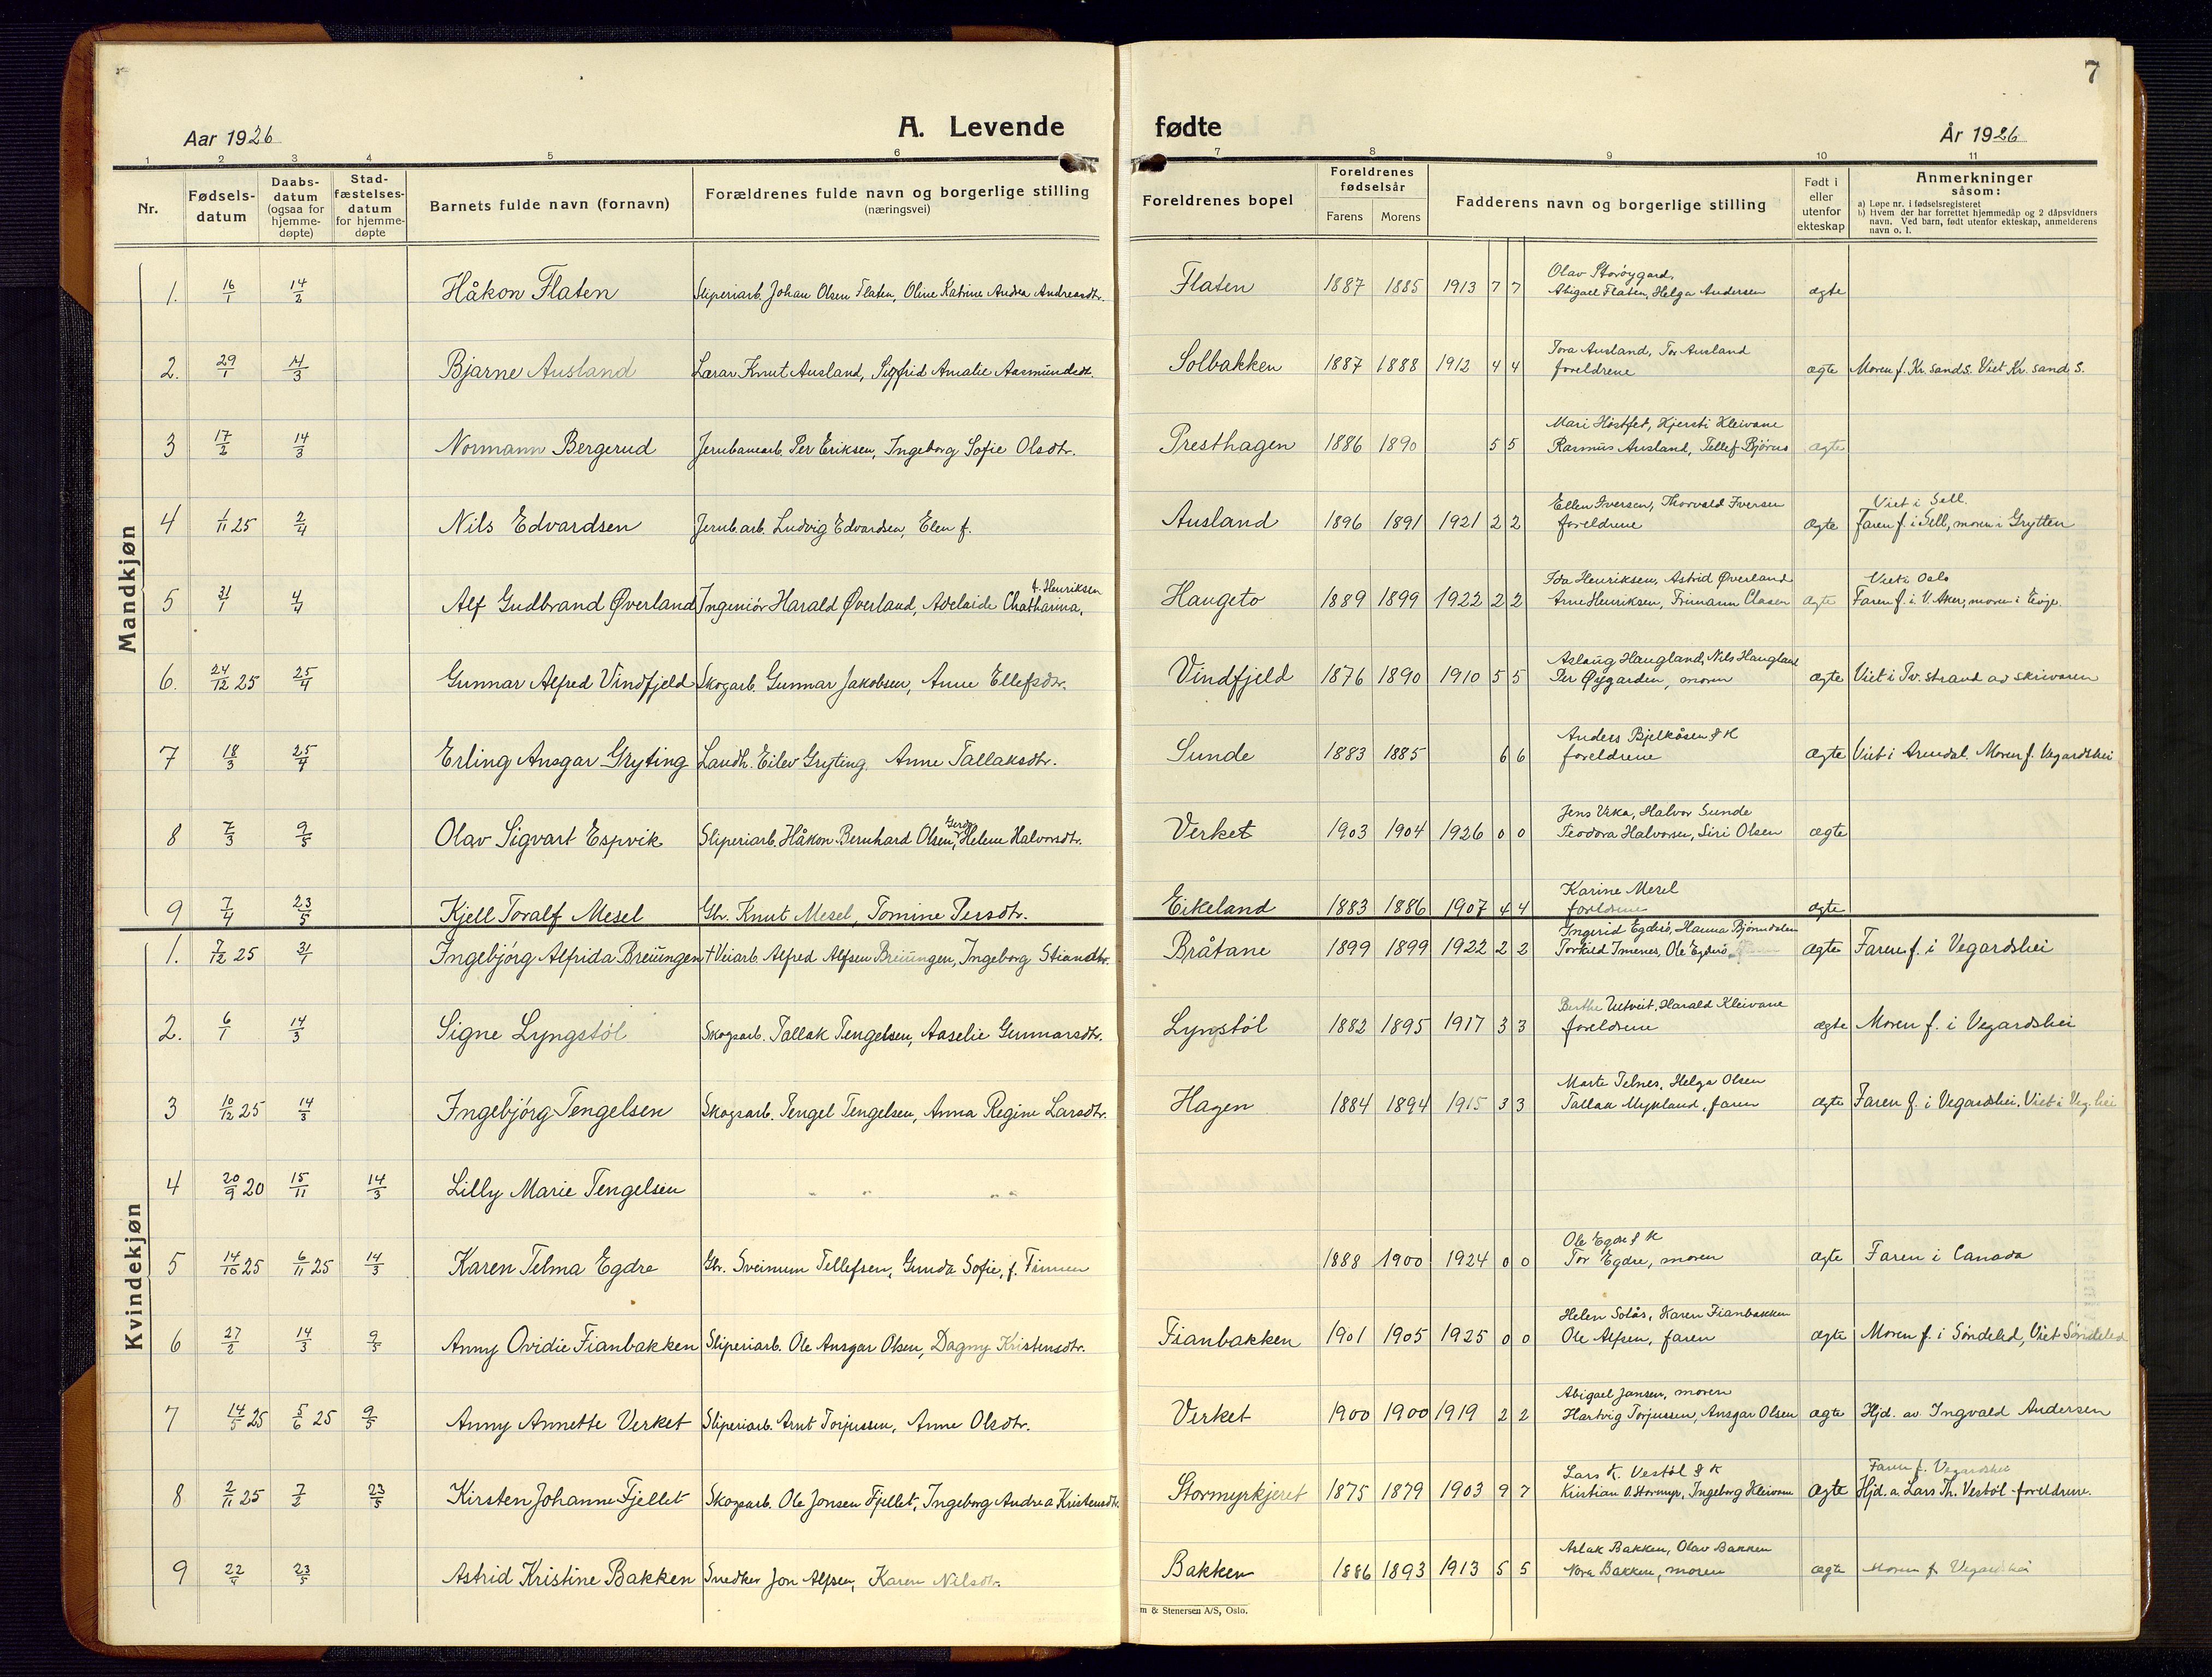 7
Aar 1926
A. Levende fødte
År 1926
1 2 3 4 5 6 7 8 9 10 11
Nr. Fødsels-datum Daabs-datum (ogsaa for hjemme-døpte) Stad-fæstelses-datum for hjemme-døpte Barnets fulde navn (fornavn) Forældrenes fulde navn og borgerlige stilling (næringsvei) Foreldrenes bopel Foreldrenes fødselsår Farens Morens Fadderens navn og borgerlige stilling Født i eller utenfor ekteskap Anmerkninger såsom:
a) Løpe nr. i fødselsregisteret
b) Hvem der har forrettet hjemmedåp og 2 dåpsvidners navn. Ved barn, født utenfor ekteskap, anmelderens navn o. l.
Mandkjøn
1. 16/1 14/2 Håkon Flaten Sliperiarb. Johan Olsen Flaten, Oline Katrine Andrea Andreasdtr. Flaten 1887 1885 1913 7 7 Olav Storøygard, Abigael Flaten, Helga Andersen ægte
2. 29/1 14/3 Bjarne Ausland Lærar Knut Ausland, Sigfrid Amalie Aasmundsdt. Solbakken 1887 1888 1912 4 4 Tora Ausland, Tor Ausland foreldrene ægte Moren f. Kr. sand S. Viet Kr. sand S.
3 17/2 14/3 Normann Bergerud Jernbanearb. Per Eriksen, Ingeborg Sofie Olsdtr. Presthagen 1886 1890 5 5 Mari Høstfet, Kjersti Kleivane Rasmus Ausland, Tellef Bjørus ægte
4 1/11 25 2/4 Nils Edvardsen Jernb.arb. Ludvig Edvardsen, Elen f. Ausland 1896 1891 1921 2 2 Ellen Iversen, Thorvald Iversen foreldrene ægte Viet i Sell. Faren f. i Sell, moren i Grytten
5 31/1 4/4 Alf Gudbrand Øverland Ingeniør Harald Øverland, Adelaide Chatharina, f. Henriksen Haugeto 1889 1899 1922 2 2 Ida Henriksen, Astrid Øverland Arne Henriksen, Frimann Clasen ægte Viet i Oslo Faren f. i V. Aker, moren i Eivje.
6. 24/12 25 25/4 Gunnar Alfred Vindfjeld Skogarb. Gunnar Jakobsen, Anne Ellefsdtr. Vindfjeld 1876 1890 1910 5 5 Aslaug Haugland, Nils Haugland Per Øygarden, moren ægte Viet i Tv. strand av skrivaren
7 18/3 25/4 Erling Ansgar Gryting Landh. Eilev Gryting. Anne Tallaksdtr. Sunde 1883 1885 6 6 Anders Bjelkåsen & K foreldrene ægte Viet i Arendal. Moren f. Vegardshei
8 7/3 9/5 Olav Sigvart Espvik Sliperiarb. Håkon Bernhard Olsen, Gerda Helene Halvorsdtr. Verket 1903 1904 1926 0 0 Jens Veka, Halvor Sunde Teodora Halvorsen, Siri Olsen ægte
9 7/4 23/5 Kjell Toralf Mesel Gbr. Knut Mesel, Tomine Persdtr. Eikeland 1883 1886 1907 4 4 Karine Mesel foreldrene ægte
Kvindekjøn
1. 7/12 25 31/1 Ingebjörg Alfrida Breiungen † Veiarb. Alfred Alfsen Breiungen, Ingeborg Stiandtr. Bråtane 1899 1899 1922 2 2 Ingerid Egderö, Hanna Björnndalen Torkild Imenes, Ole Egderö ægte Faren f. i Vegardshei
2. 6/1 14/3 Signe Lyngstöl Skogsarb. Tallak Tengelsen, Aaselie Gunnarsdtr. Lyngstöl 1882 1895 1917 3 3 Berthe Uetveit, Harald Kleivane foreldrene ægte Moren f. i Vegardshei
3 10/12 25 14/3 Ingebjörg Tengelsen Skogsarb. Tengel Tengelsen, Anna Regine Larsdtr. Hagen 1884 1894 1915 3 3 Marte Telnes, Helga Olsen Tallak Mykland, faren ægte Faren f. i Vegardshei. Viet i Veg.hei
4 20/9 20 15/11 14/3 Lilly Marie Tengelsen " " " "
5 14/10 25 6/11 25 14/3 Karen Telma Egdre Gbr. Sveinum Tellefsen, Gunda Sofie, f. Finnen 1888 1900 1924 0 0 Ole Egdre & K Tor Egdre, moren ægte Faren i Canada
6 27/2 14/3 9/5 Anny Ovidie Fianbakken Sliperiarb. Ole Ansgar Olsen, Dagny Kristensdtr. Fianbakken 1901 1905 1925 0 0 Helen Solås, Karen Fianbakken Ole Alfsen, faren ægte Moren f. i Söndeled, Viet Söndeled
7 14/5 25 5/6 25 9/5 Anny Annette Verket Sliperiarb. Arnt Torjussen, Anne Olsdtr. Verket 1900 1900 1919 2 2 Abigael Jansen, moren Hartvig Torjussen, Ansgar Olsen ægte Hjd. av Ingvald Andersen
8 2/11 25 7/2 23/5 Kirsten Johanne Fjellet Skogsarb. Ole Jonsen Fjellet, Ingeborg Andrea Kristensdtr Stormyrkjeret 1875 1879 1903 9 7 Lars K. Vestöl & K Kristian O. Stormyr, Ingeborg Kleivane ægte Faren f. Vegardshei Hjd. a. Lars Th. Vestöl foreldrene.
9 22/4 23/5 Astrid Kristine Bakken Snedker Jon Alfsen, Karen Nilsdtr. Bakken 1886 1893 1913 5 5 Aslak Bakken, Olav Bakken Nora Bakken, moren ægte Moren f. Vegardshei
m & Stenersen A/S, Oslo.